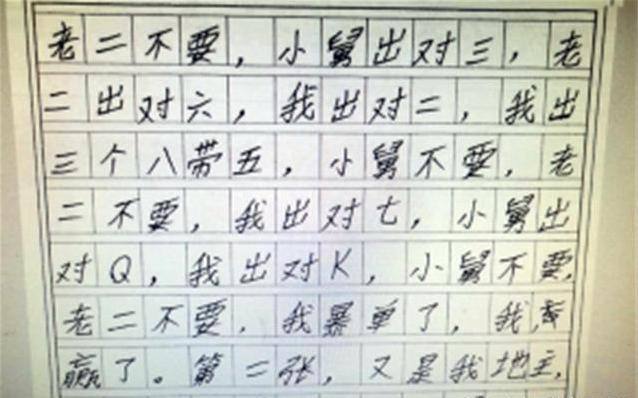 老二不要，小舅出对三，老
二出对六，我出对二，我出
三个八带五，小舅不要，老
二不要，我出对七，小舅出
对Q，我出对K，小舅不要，
老二不要，我暴单了，我
赢了。第二张，又是我地主，